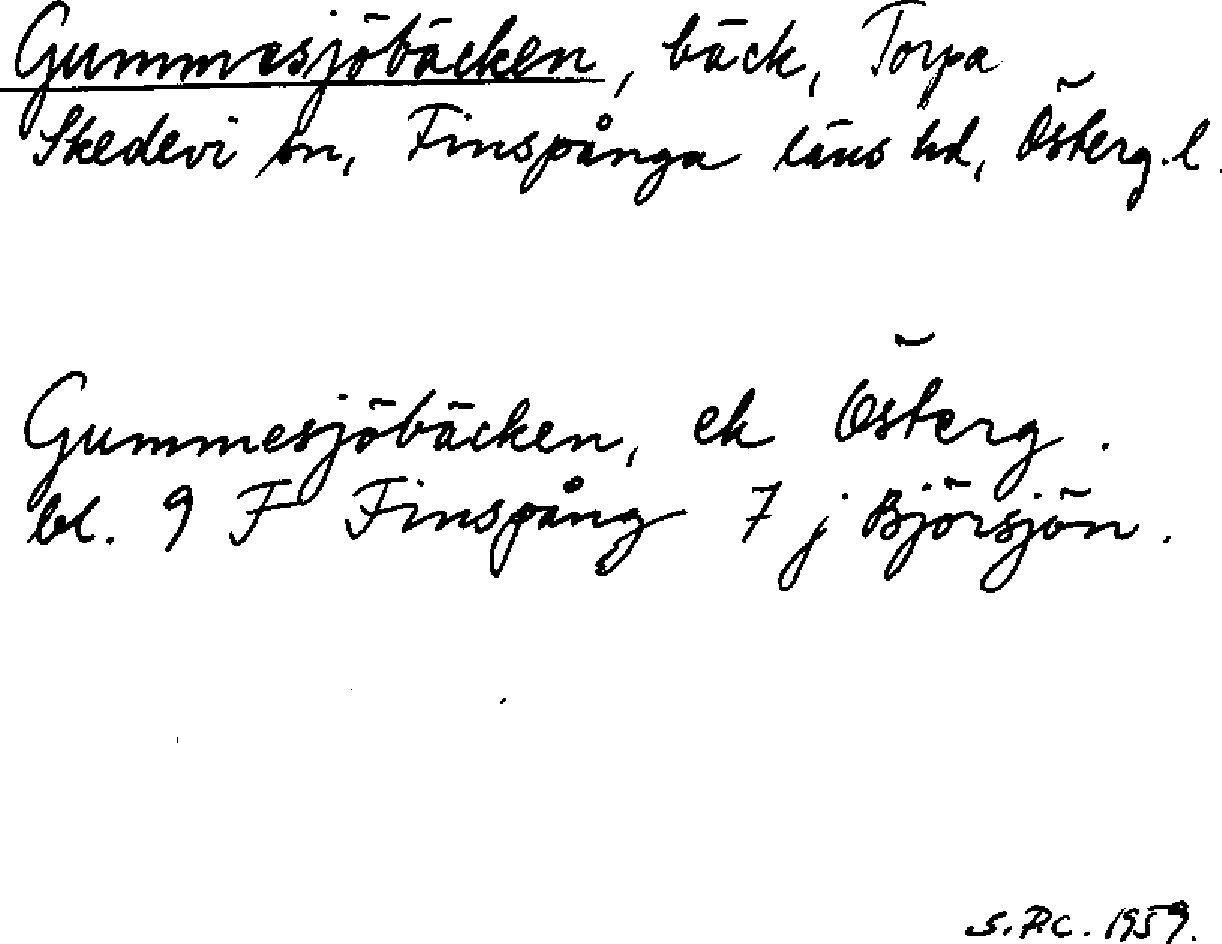 Gummesjöbäcken, bäck, Torpa
Skedevi sn, Finspånga läns hd, Österg. l.
Gummesjöbäcken, ek Österg.
bl. 9 F Finspång 7 j Björsjön.
S.P.C. 1959.